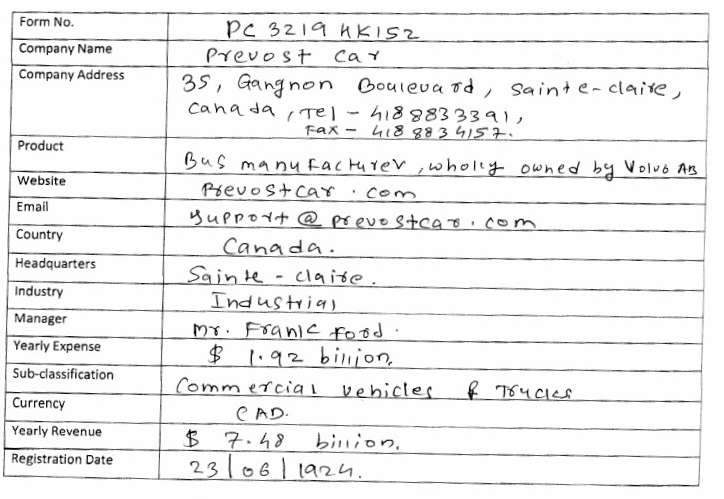 Form No. PC 3219 HK152
Company Name Prevost Car
Company Address 35, Gangnon Boulevard, Sainte-claire,
Canada, Tel - 4188833391,
Fax - 4188834157.
Product Bus manufacturer, wholly owned by Volvo AB
Website Prevostcar.com
Email support@prevostcar.com
Country Canada.
Headquarters Sainte-claire.
Industry Industrial
Manager Mr. Frank Ford.
Yearly Expense $ 1.92 billion.
Sub-classification Commercial vehicles & Trucks
Currency CAD.
Yearly Revenue $ 7.48 billion.
Registration Date 23/06/1924.